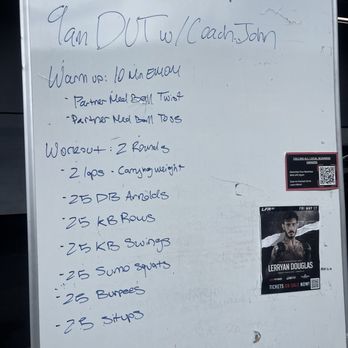 9am DUT w/ Coach John
Warm up: 10 Min EMOM
- Partner Med Ball Twist
- Partner Med Ball Toss
Workout: 2 Rounds
- 2 laps - Carrying weight
- 25 DB Arnolds
- 25 KB Rows
- 25 KB Swings
- 25 Sumo Squats
- 25 Burpees
- 25 Situps
CALLING ALL LOCAL BUSINESS OWNERS
LFA
FRI MAY 17
LERRYAN DOUGLAS
TICKETS ON SALE NOW!